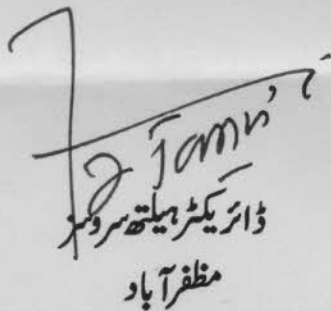 ڈائریکٹر ہیلتھ سروسز
مظفرآباد